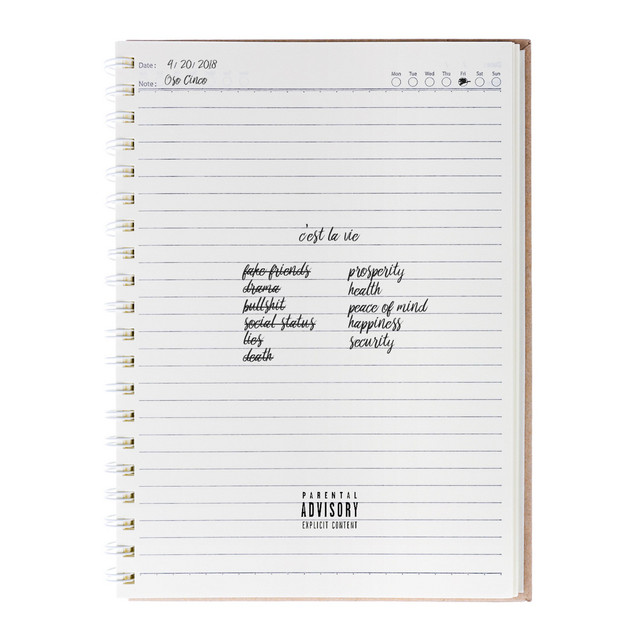 Date: 9/20/2018
Note: Oso Cinco
Mon Tue Wed Thu Fri Sat Sun
c'est la vie
fake friends prosperity
drama health
bullshit peace of mind
social status happiness
lies security
death
PARENTAL
ADVISORY
EXPLICIT CONTENT